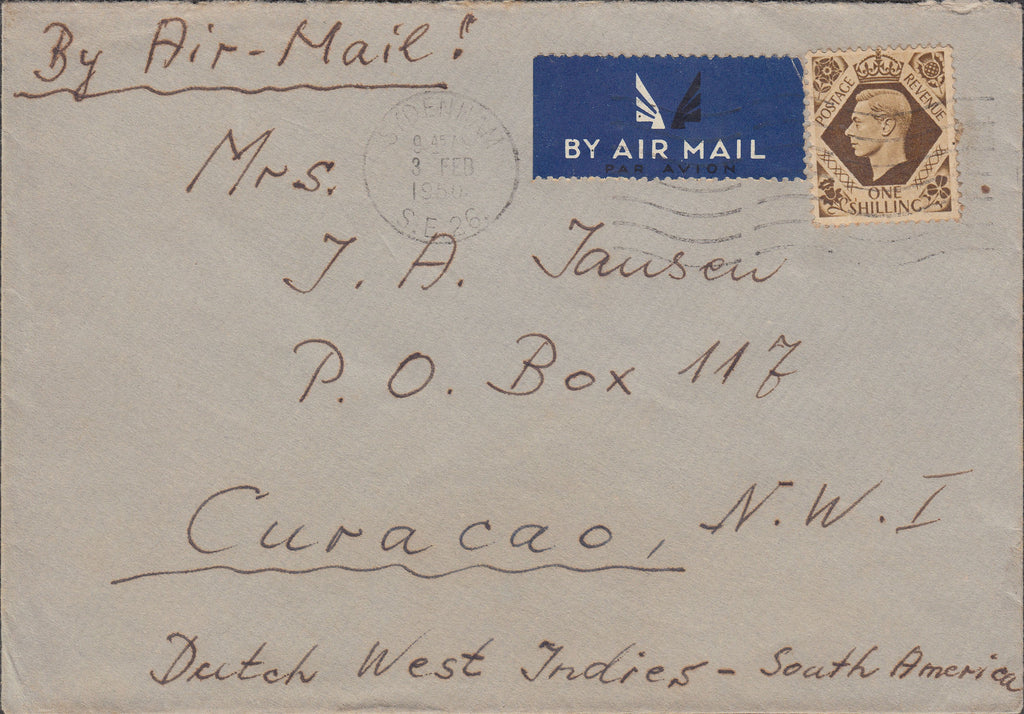 By Air-Mail!
BY AIR MAIL
PAR AVION
POSTAGE REVENUE
ONE
SHILLING
SYDENHAM
9 45 AM
3 FEB
1950
S.E.26.
Mrs.
J. A. Jansen
P. O. Box 117
Curacao, N.W.I
Dutch West Indies - South America